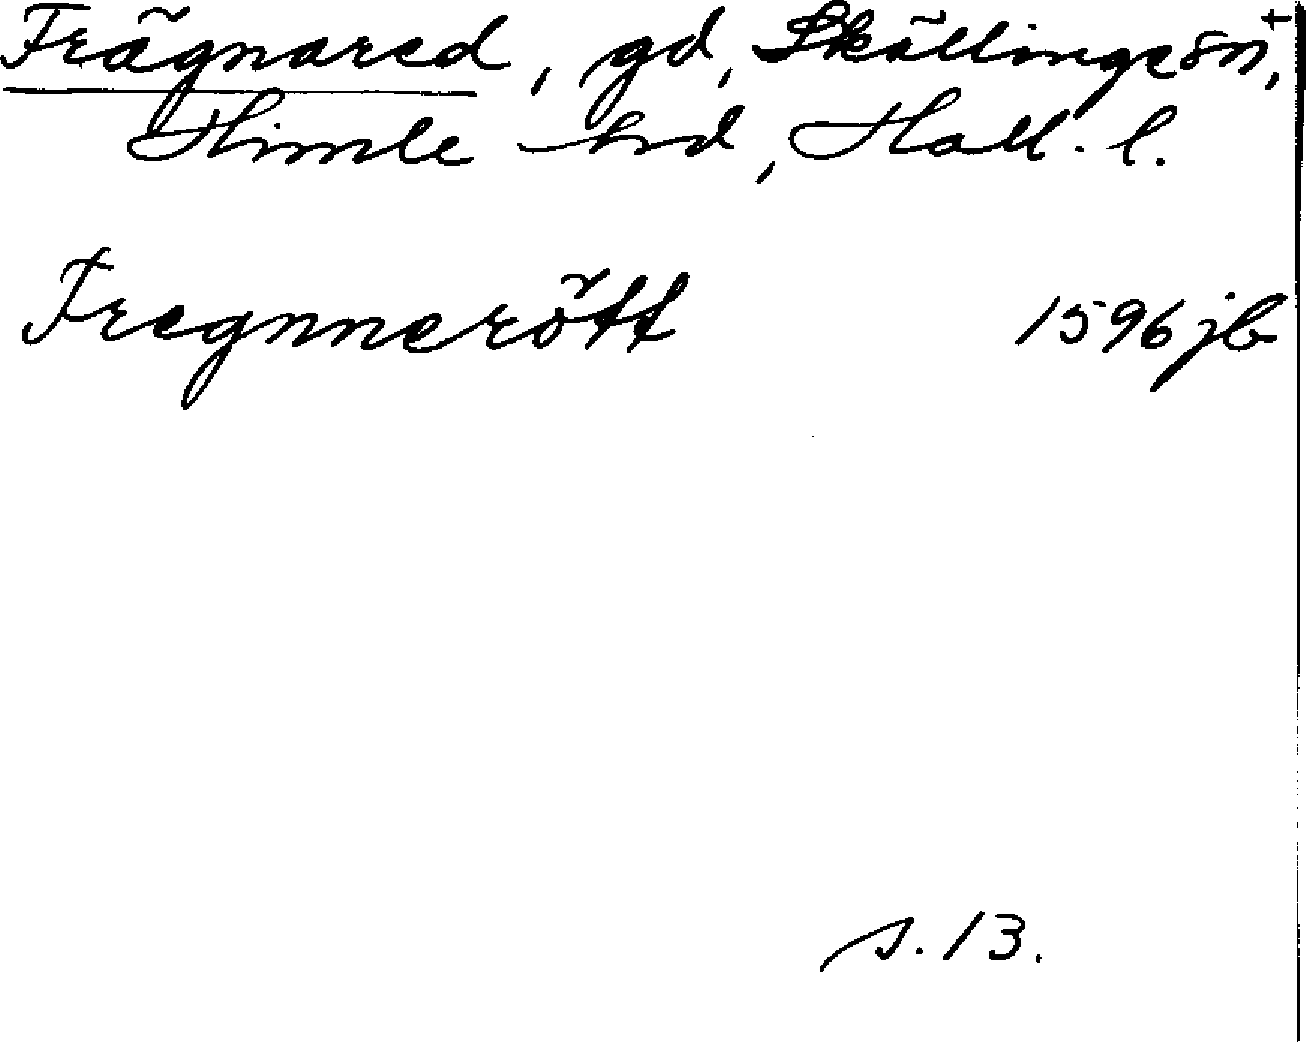 Frägnared, gd, Skällinge sn,
Himle hd, Hall. l.
Fregnnerött 1596 jb
s. 13.